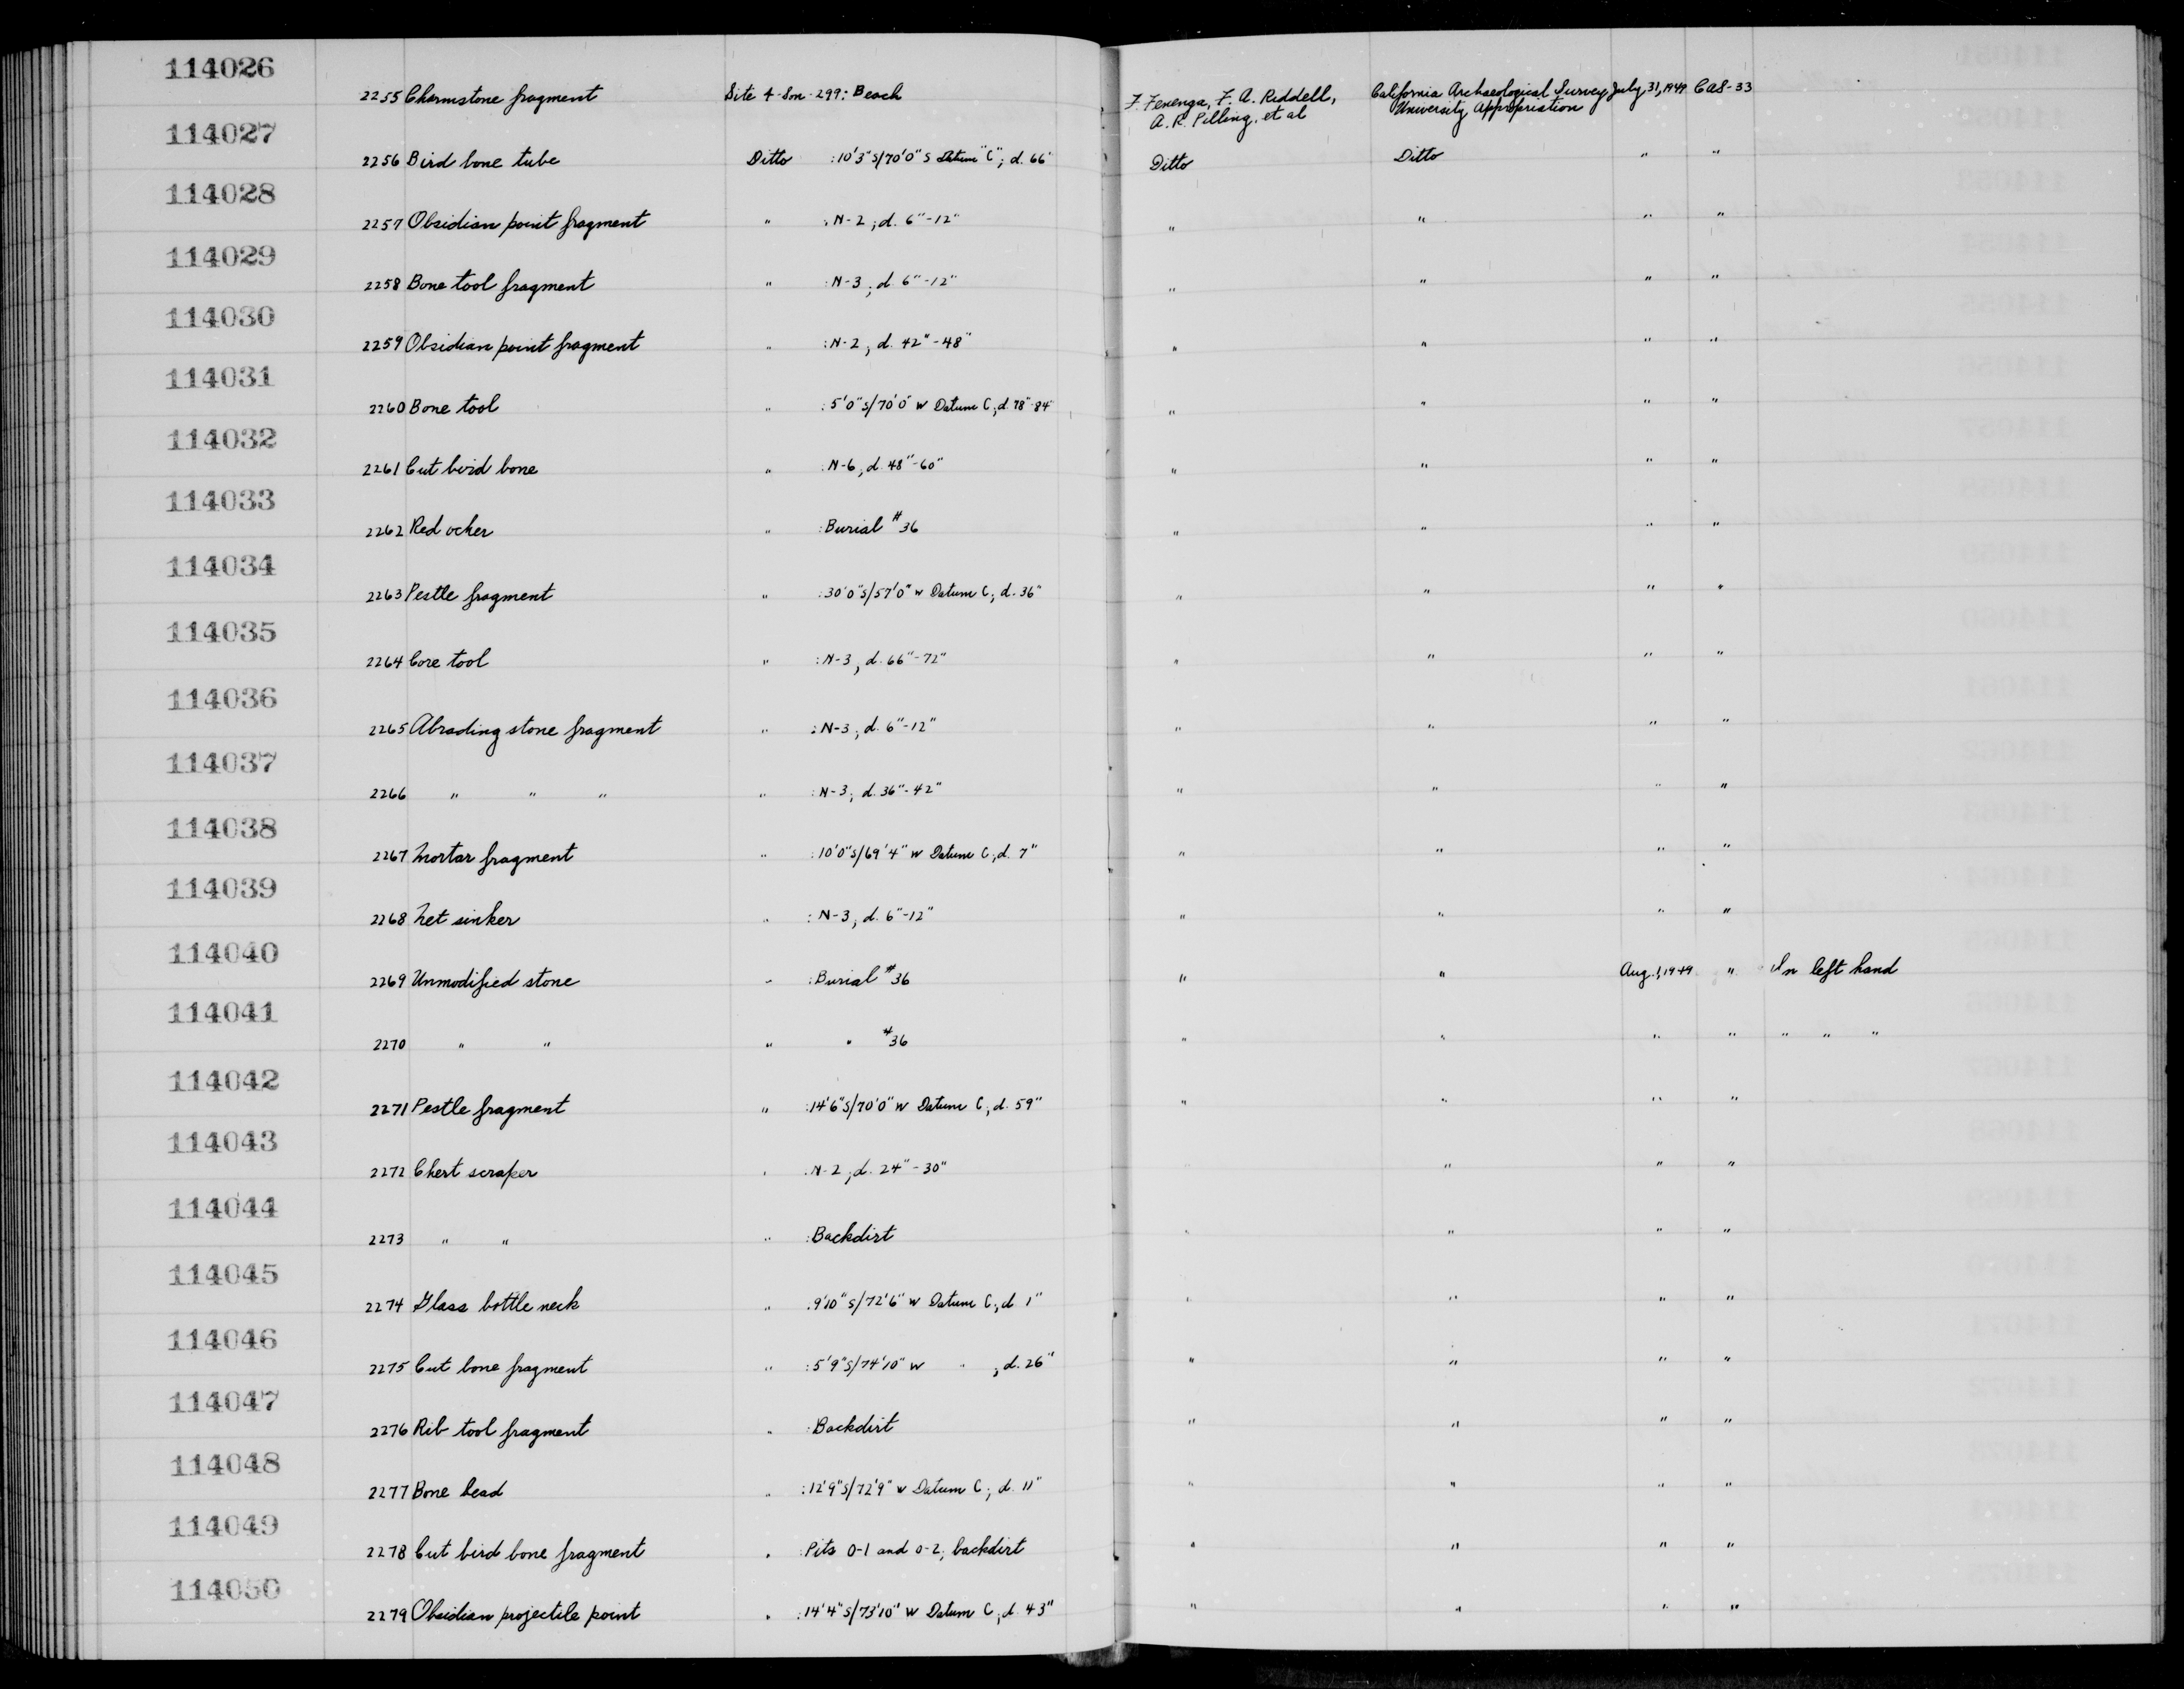 114026
2255 Charmstone fragment Site 4-Son-299: Beach F. Fenenga, F. A. Riddell, California Archaeological Survey July 31, 1949 CAS-33
A. R. Pilling, et al University Appropriation
114027
2256 Bird bone tube Ditto :10'3"S/70'0"S Datum "C"; d. 66" Ditto Ditto " "
114028
2257 Obsidian point fragment " :N-2; d. 6"-12" " " " "
114029
2258 Bone tool fragment " :N-3; d. 6"-12" " " " "
114030
2259 Obsidian point fragment " :N-2; d. 42"-48" " " " "
114031
2260 Bone tool " :5'0"S/70'0" W Datum C; d. 78"-84" " " " "
114032
2261 Cut bird bone " :N-6; d. 48"-60" " " " "
114033
2262 Red ocher " :Burial #36 " " " "
114034
2263 Pestle fragment " :30'0"S/57'0" W Datum C; d. 36" " " " "
114035
2264 Core tool " :N-3; d. 66"-72" " " " "
114036
2265 Abrading stone fragment " :N-3; d. 6"-12" " " " "
114037
2266 " " " " :N-3; d. 36"-42" " " " "
114038
2267 Mortar fragment " :10'0"S/69'4" W Datum C; d. 7" " " " "
114039
2268 Net sinker " :N-3; d. 6"-12" " " " "
114040
2269 Unmodified stone " :Burial #36 " " Aug. 1, 1949 " In left hand
114041
2270 " " " " #36 " " " " " " "
114042
2271 Pestle fragment " :14'6"S/70'0" W Datum C; d. 59" " " " "
114043
2272 Chert scraper " :N-2; d. 24"-30" " " " "
114044
2273 " " " :Backdirt " " " "
114045
2274 Glass bottle neck " :9'10"S/72'6" W Datum C; d. 1" " " " "
114046
2275 Cut bone fragment " :5'9"S/74'10" W " ; d. 26" " " " "
114047
2276 Rib tool fragment " :Backdirt " " " "
114048
2277 Bone bead " :12'9"S/72'9" W Datum C; d. 11" " " " "
114049
2278 Cut bird bone fragment " :Pits O-1 and O-2; backdirt " " " "
114050
2279 Obsidian projectile point " :14'4"S/73'10" W Datum C; d. 43" " " " "